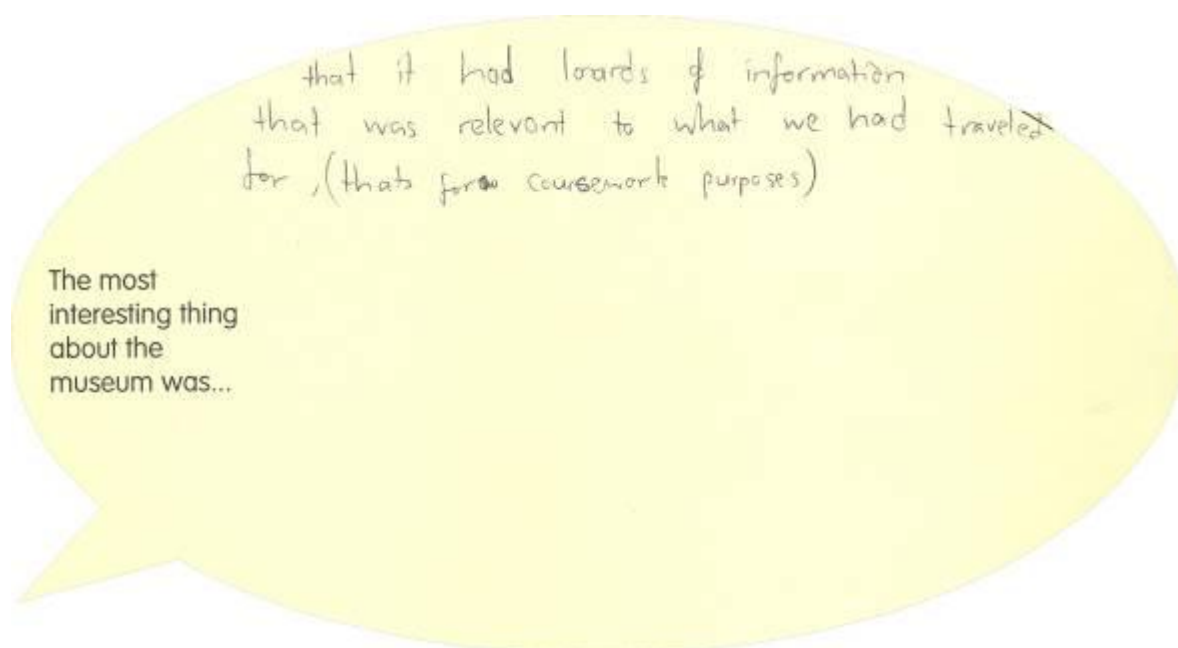 that it had loards of information
that was relevant to what we had traveled
for, (thats for coursework purposes)
The most
interesting thing
about the
museum was...